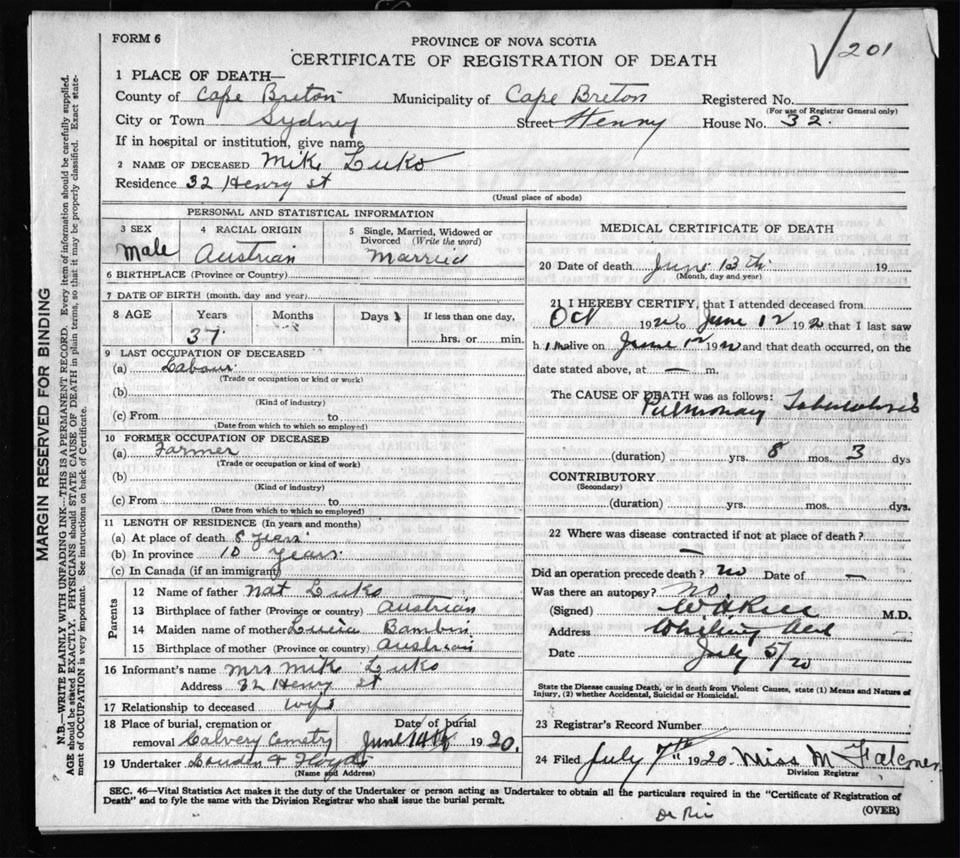 FORM 6
PROVINCE OF NOVA SCOTIA
201
CERTIFICATE OF REGISTRATION OF DEATH
1 PLACE OF DEATH—
County of Cape Breton Municipality of Cape Breton Registered No.
(For use of Registrar General only)
City or Town Sydney Street Henry House No. 32.
If in hospital or institution, give name
2 NAME OF DECEASED Mike Luko
Residence 32 Henry st
(Usual place of abode)
PERSONAL AND STATISTICAL INFORMATION
3 SEX Male
4 RACIAL ORIGIN Austrian
5 Single, Married, Widowed or Divorced (Write the word) Married
6 BIRTHPLACE (Province or Country)
7 DATE OF BIRTH (month, day and year)
8 AGE Years Months Days If less than one day,
37 hrs. or min.
9 LAST OCCUPATION OF DECEASED
(a) Labour
(Trade or occupation or kind or work)
(b)
(Kind of industry)
(c) From to
(Date from which to which so employed)
10 FORMER OCCUPATION OF DECEASED
(a) Farmer
(Trade or occupation or kind or work)
(b)
(Kind of industry)
(c) From to
(Date from which to which so employed)
11 LENGTH OF RESIDENCE (In years and months)
(a) At place of death 8 years
(b) In province 10 years
(c) In Canada (if an immigrant)
Parents
12 Name of father Nat Luko
13 Birthplace of father (Province or country) Austrian
14 Maiden name of mother Lucia Bambin
15 Birthplace of mother (Province or country) Austrian
16 Informant's name Mrs Mike Luko
Address 32 Henry st
17 Relationship to deceased wife
18 Place of burial, cremation or Date of burial
removal Calvery Cemetry June 14th 1920.
19 Undertaker
(Name and Address)
MEDICAL CERTIFICATE OF DEATH
20 Date of death June 13th 19
(Month, day and year)
21 I HEREBY CERTIFY, that I attended deceased from
Oct 192 to June 12 192 that I last saw
h im alive on June 12 19 and that death occurred, on the
date stated above, at — m.
The CAUSE OF DEATH was as follows:
Pulmonary Tuberculosis
(duration) yrs. 8 mos. 3 dys
CONTRIBUTORY
(Secondary)
(duration) yrs. mos. dys.
22 Where was disease contracted if not at place of death?
—
Did an operation precede death? no Date of —
Was there an autopsy? no
(Signed) M.D.
Address Whitney
Date July 5/20
State the Disease causing Death, or in death from Violent Causes, state (1) Means and Nature of
Injury, (2) whether Accidental, Suicidal or Homicidal.
23 Registrar's Record Number
24 Filed July 7th 1920 Miss M Falconer
Division Registrar
SEC. 46—Vital Statistics Act makes it the duty of the Undertaker or person acting as Undertaker to obtain all the particulars required in the "Certificate of Registration of
Death" and to fyle the same with the Division Registrar who shall issue the burial permit.
(OVER)
MARGIN RESERVED FOR BINDING
N.B.—WRITE PLAINLY WITH UNFADING INK—THIS IS A PERMANENT RECORD. Every item of information should be carefully supplied.
AGE should be stated EXACTLY. PHYSICIANS should STATE CAUSE OF DEATH in plain terms, so that it may be properly classified. Exact state-
ment of OCCUPATION is very important. See instructions on back of Certificate.